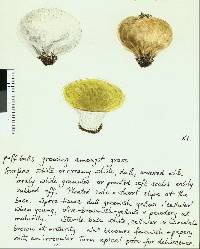 x1
puffballs growing amongst grass
Sporophore white or creamy white, dull, covered with
early white granules or pointed soft scales easily
rubbed off. Pleated root-like short stipe at the
base. Spore tissue dull greenish yellow & cellular
when young, olive-brown-ish-yellow & powdery at
maturity. Sterile base white, cellular in
brown at maturity which becomes brownish & papery
with an irregular torn apical pore for dehiscence.